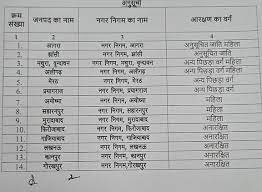 अनुसूची
क्रम संख्या जनपद का नाम नगर निगम का नाम आरक्षण का वर्ग
1 2 3 4
1. आगरा नगर निगम, आगरा अनुसूचित जाति महिला
2. झांसी नगर निगम, झांसी अनुसूचित जाति
3. मथुरा, वृन्दावन नगर निगम, मथुरा, वृन्दावन अन्य पिछड़ा वर्ग महिला
4. अलीगढ़ नगर निगम, अलीगढ़ अन्य पिछड़ा वर्ग महिला
5. मेरठ नगर निगम, मेरठ अन्य पिछड़ा वर्ग
6. प्रयागराज नगर निगम, प्रयागराज अन्य पिछड़ा वर्ग
7. अयोध्या नगर निगम, अयोध्या महिला
8. सहारनपुर नगर निगम, सहारनपुर महिला
9. मुरादाबाद नगर निगम, मुरादाबाद महिला
10. फिरोजाबाद नगर निगम, फिरोजाबाद अनारक्षित
11. गाजियाबाद नगर निगम, गाजियाबाद अनारक्षित
12. लखनऊ नगर निगम, लखनऊ अनारक्षित
13. कानपुर नगर निगम, कानपुर अनारक्षित
14. गोरखपुर नगर निगम,गोरखपुर अनारक्षित